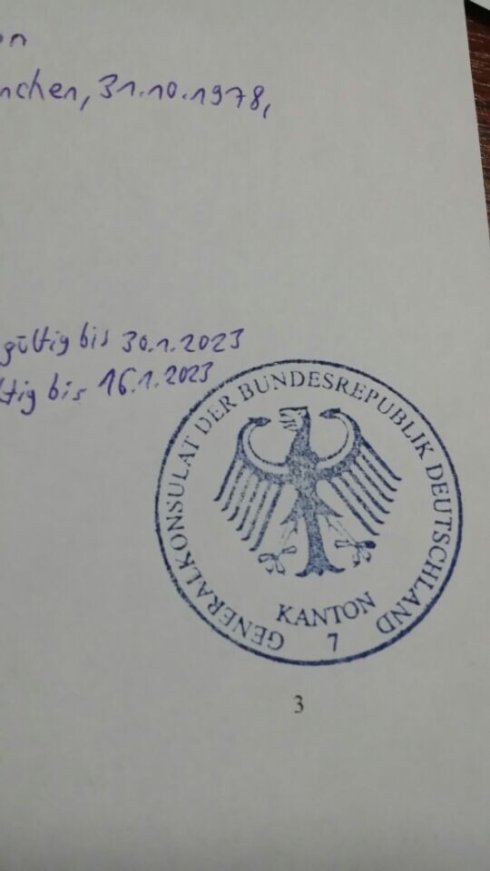 on
nchen, 31.10.1978,
gültig bis 30.1.2023
ltig bis 16.1.2023
GENERALKONSULAT DER BUNDESREPUBLIK DEUTSCHLAND
KANTON
7
3